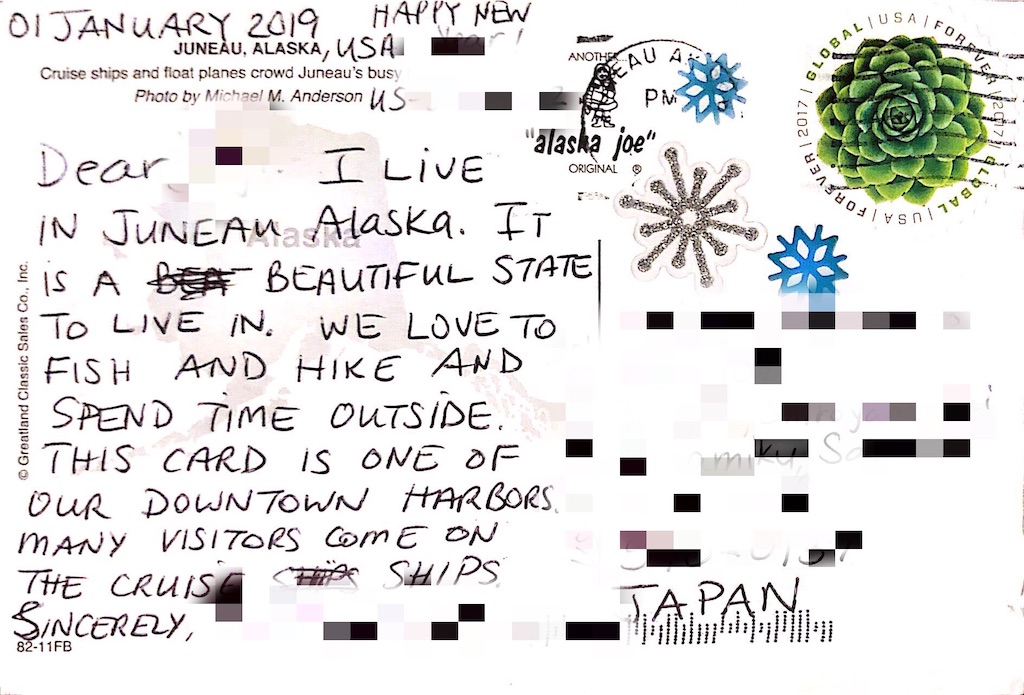 01 JANUARY 2019 HAPPY NEW
JUNEAU, ALASKA, USA
Cruise ships and float planes crowd Juneau's busy
Photo by Michael M. Anderson US-
Dear I LIVE
IN JUNEAU Alaska. IT
Alaska
IS A BEAUTIFUL STATE
TO LIVE IN. WE LOVE TO
FISH AND HIKE AND
SPEND TIME OUTSIDE.
THIS CARD IS ONE OF
OUR DOWNTOWN HARBORS.
MANY VISITORS COME ON
THE CRUISE SHIPS
SINCERELY,
82-11FB
© Greatland Classic Sales Co., Inc.
ANOTHER
"alaska joe"
ORIGINAL ®
JUNEAU
PM
GLOBAL | USA | FOREVER | 2017
GLOBAL | USA | FOREVER | 2017
JAPAN